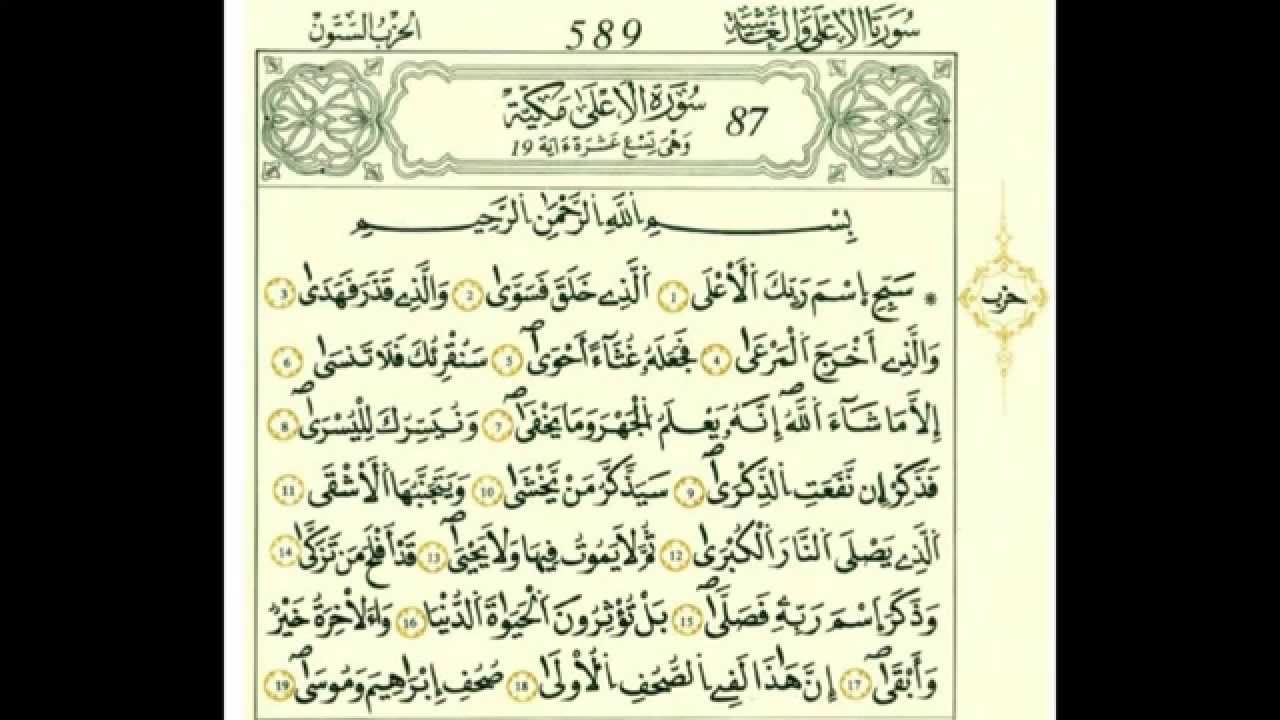 سُورَتَا الَاعْلَىٰ وَالْغَاشِيَةِ 589 الحِزْبُ السِّتُّونَ
سُورَةُ الَاعْلَىٰ مَكِّيَّةٌ 87
وَهْيَ تِسْعَ عَشْرَةَ ءَايَةً 19
بِسْمِ اِللَّهِ اِلرَّحْمَٰنِ اِلرَّحِيمِ
* سَبِّحِ اِسْمَ رَبِّكَ اَلَاعْلَى 1 اَلَّذِے خَلَقَ فَسَوَّىٰ 2 وَالَّذِے قَدَّرَ فَهَدَىٰ 3
حزب
وَالَّذِے أَخْرَجَ اَلْمَرْعَىٰ 4 فَجَعَلَهُۥ غُثَآءً اَحْوَىٰ 5 سَنُقْرِئُكَ فَلَا تَنسَىٰ 6
إِلَّا مَا شَآءَ اَللَّهُ إِنَّهُۥ يَعْلَمُ اُلْجَهْرَ وَمَا يَخْفَىٰ 7 وَنُيَسِّرُكَ لِلْيُسْرَىٰ 8
فَذَكِّرِ اِن نَّفَعَتِ اِلذِّكْرَىٰ 9 سَيَذَّكَّرُ مَنْ يَّخْشَىٰ 10 وَيَتَجَنَّبُهَا اَلَاشْقَى 11
اَلَّذِے يَصْلَى اَلنَّارَ اَلْكُبْرَىٰ 12 ثُمَّ لَا يَمُوتُ فِيهَا وَلَا يَحْيَىٰ 13 قَدَ اَفْلَحَ مَن تَزَكَّىٰ 14
وَذَكَرَ اَسْمَ رَبِّهِۦ فَصَلَّىٰ 15 بَلْ تُؤْثِرُونَ اَلْحَيَوٰةَ اَلدُّنْيَا 16 وَالَاخِرَةُ خَيْرٌ
وَأَبْقَىٰ 17 إِنَّ هَٰذَا لَفِے اِلصُّحُفِ اِلُاولَىٰ 18 صُحُفِ إِبْرَٰهِيمَ وَمُوسَىٰ 19